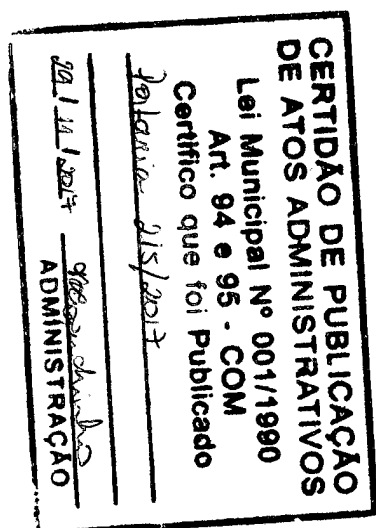 CERTIDÃO DE PUBLICAÇÃO
DE ATOS ADMINISTRATIVOS
Lei Municipal Nº 001/1990
Art. 94 e 95 - COM
Certifico que foi Publicado
Portaria 215/2017
29/11/2017
ADMINISTRAÇÃO